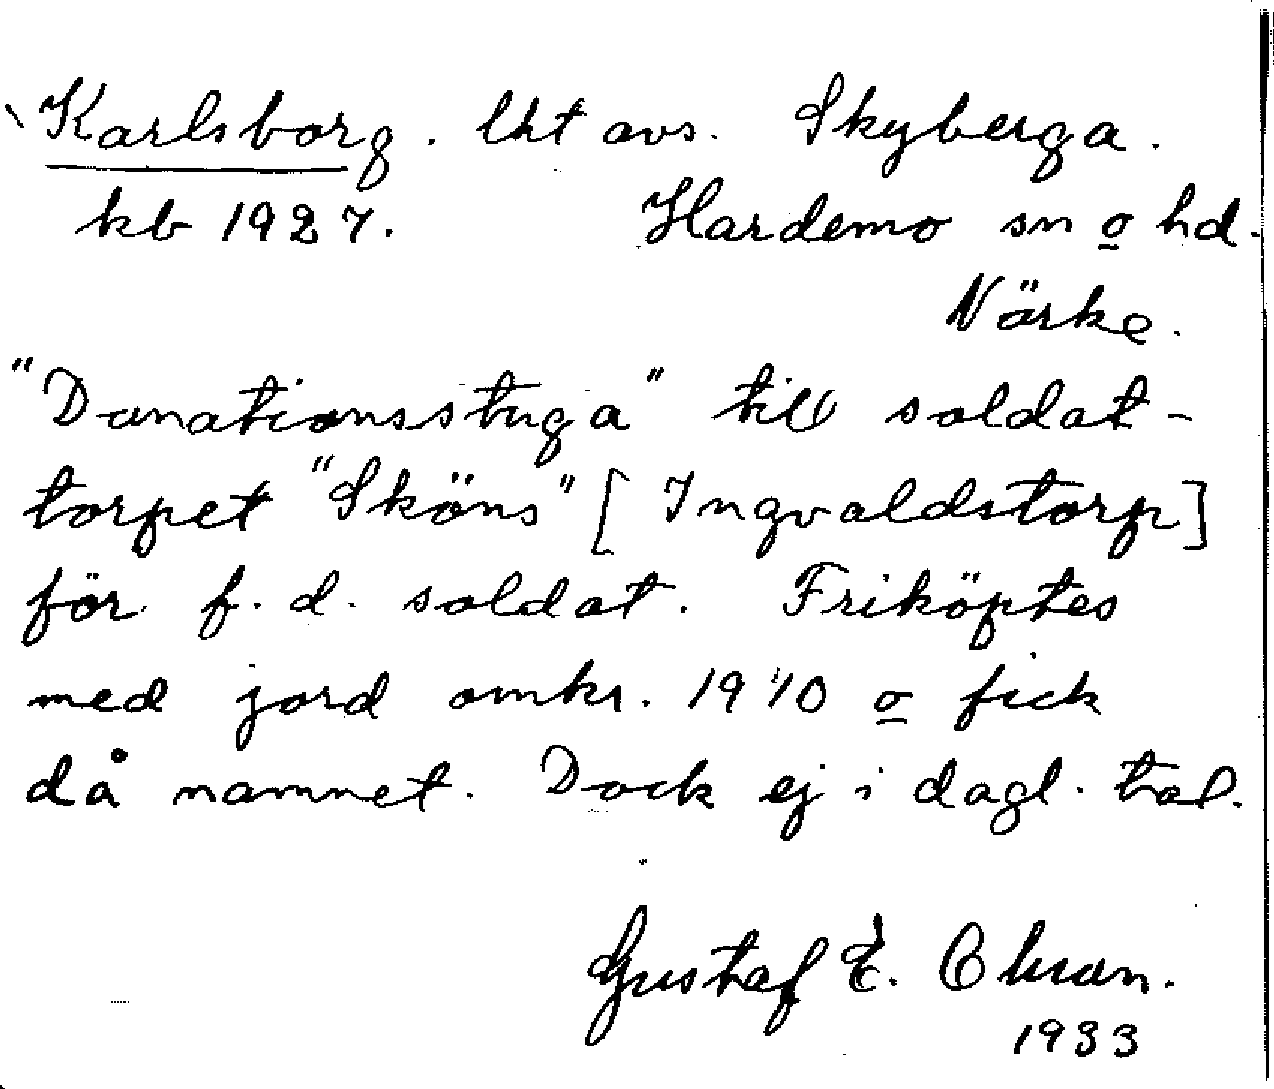 Karlsborg. lht avs. Skyberga.
kb 1927. Hardemo sn o hd.
Närke.
"Donationsstuga" till soldat-
torpet "Sköns" [Ingvaldstorp]
för f.d. soldat. Friköptes
med jord omkr. 1910 o fick
då namnet. Dock ej i dagl. tal.
Gustaf E.
1933